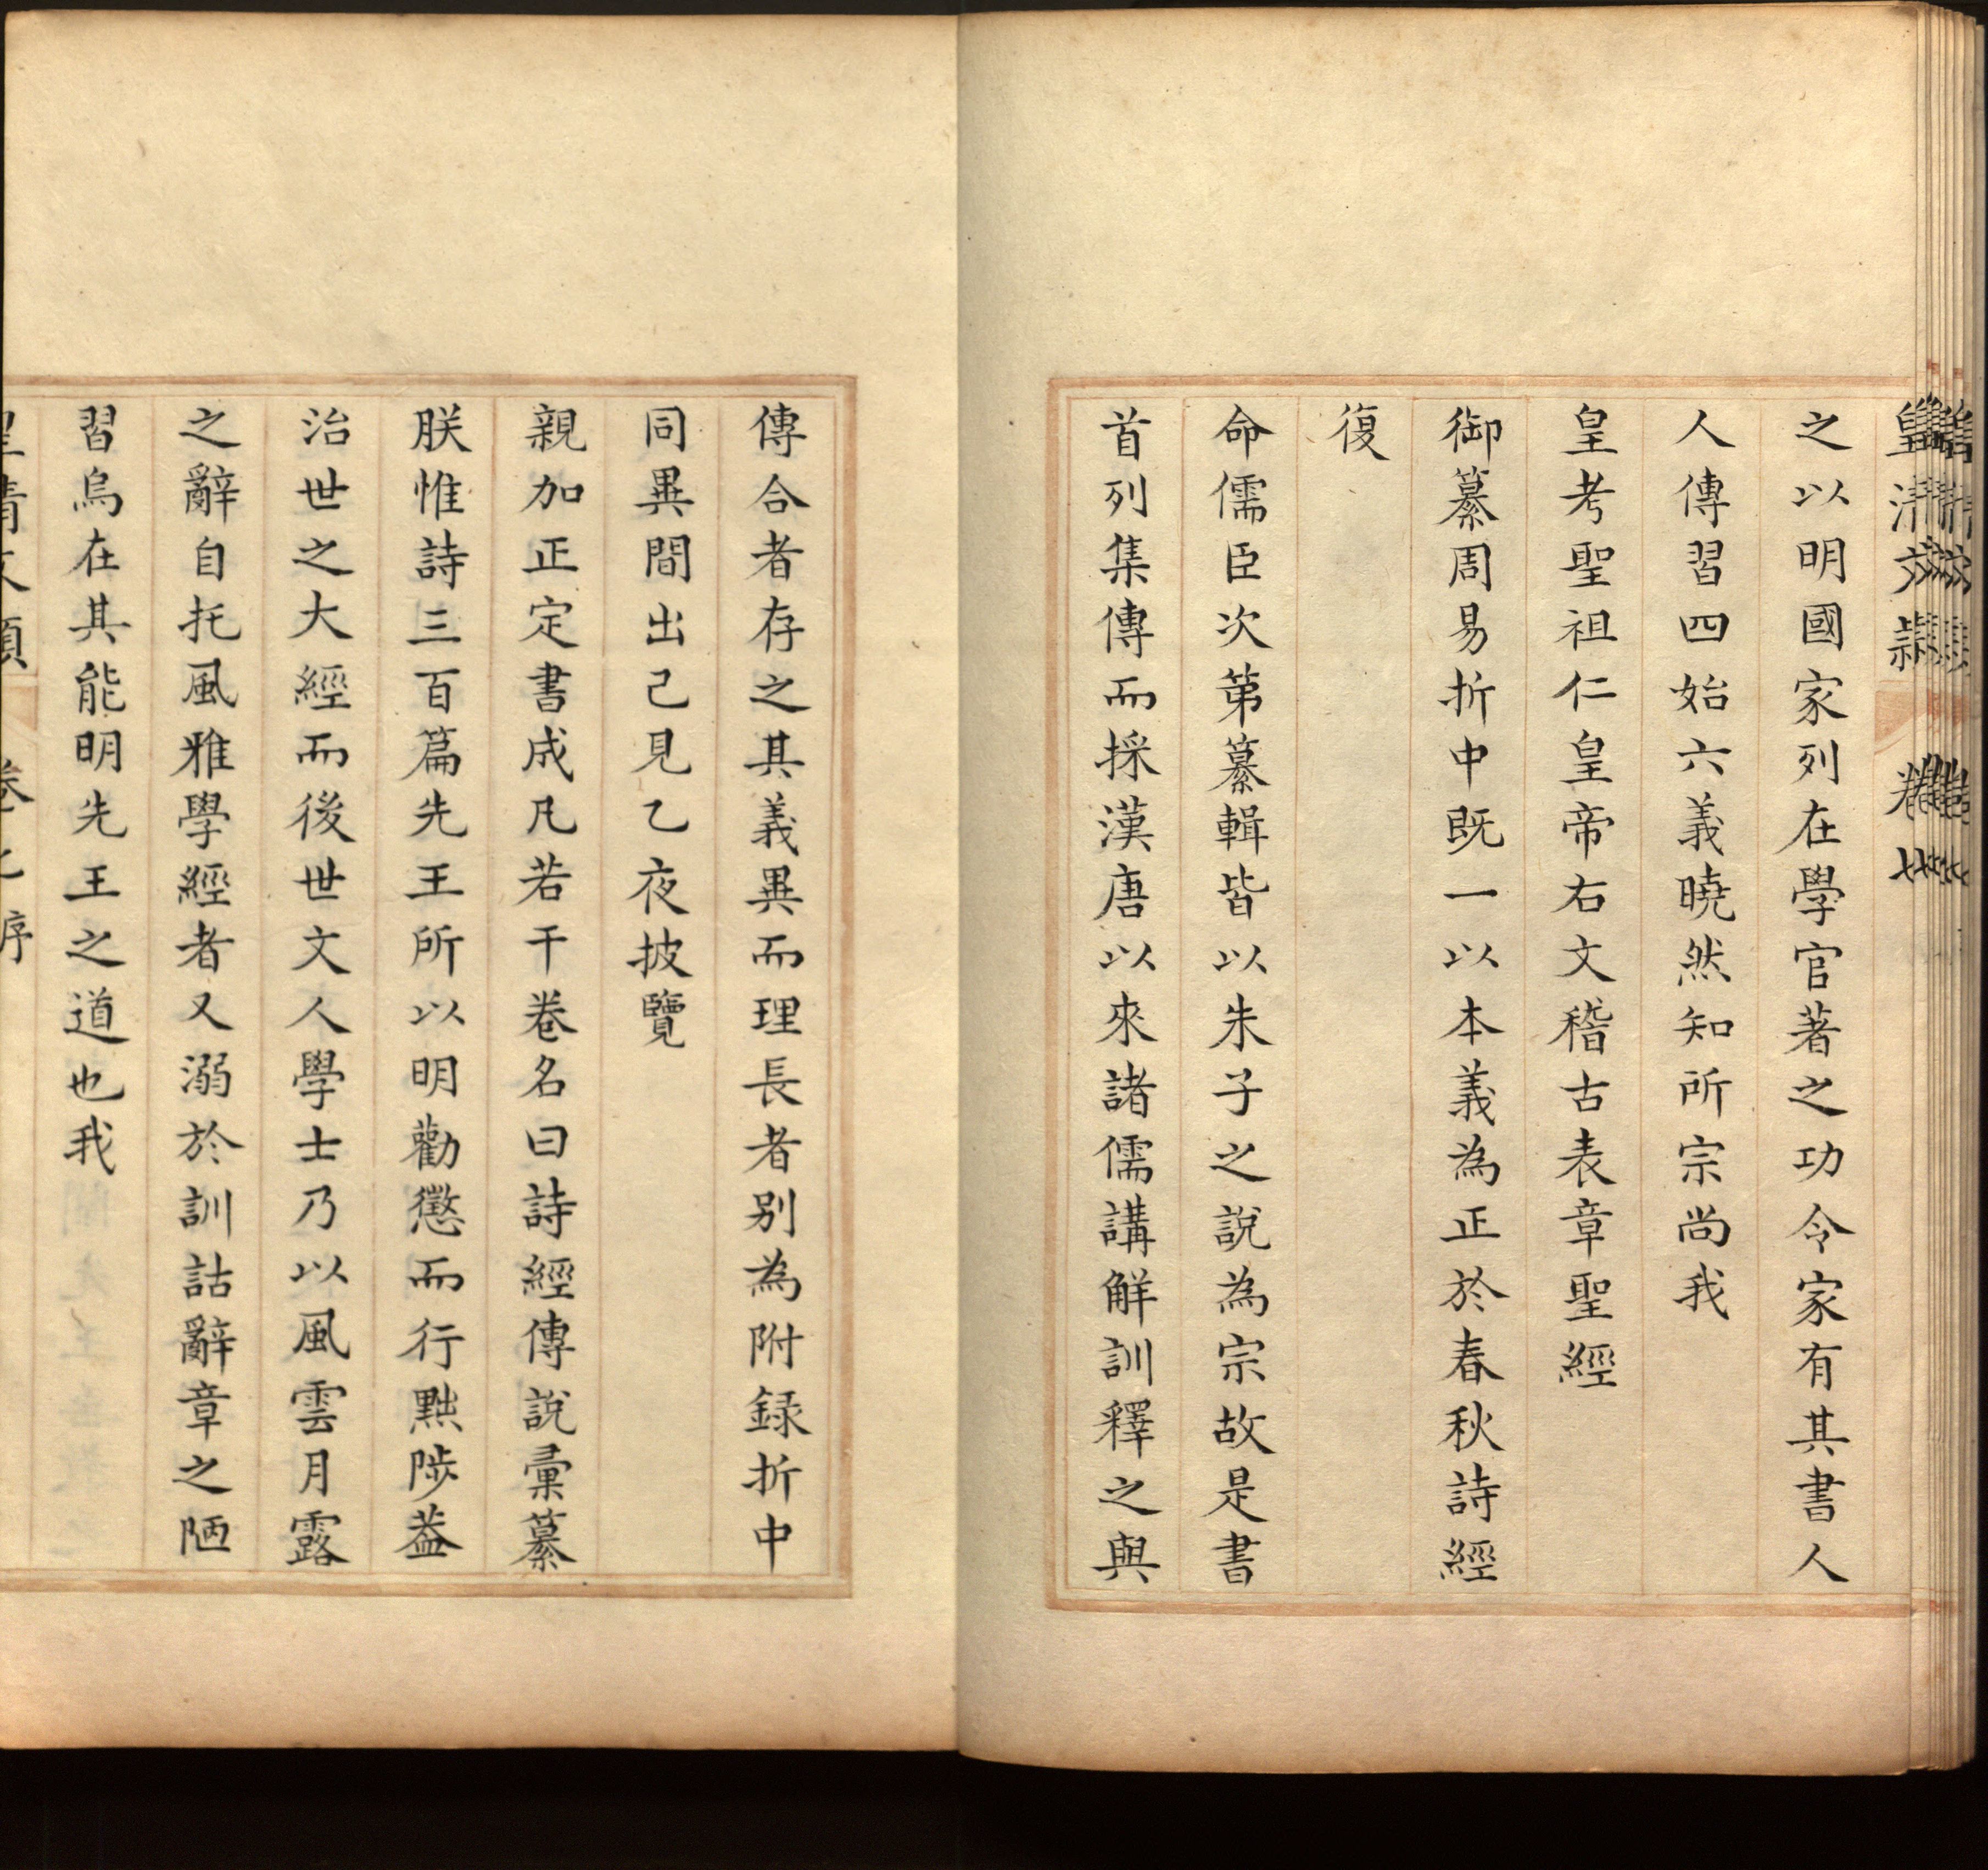 皇清文穎 卷七
之以明國家列在學官著之功令家有其書人
人傳習四始六義曉然知所宗尚我
皇考聖祖仁皇帝右文稽古表章聖經
御纂周易折中既一以本義為正於春秋詩經
復
命儒臣次第纂輯皆以朱子之說為宗故是書
首列集傳而採漢唐以來諸儒講解訓釋之與
傳合者存之其義異而理長者别為附録折中
同異間出己見乙夜披覽
親加正定書成凡若干卷名曰詩經傳說彙纂
朕惟詩三百篇先王所以明勸懲而行黜陟益
治世之大經而後世文人學士乃以風雲月露
之辭自托風雅學經者又溺於訓詁辭章之陋
習烏在其能明先王之道也我
皇清文穎 卷七 序